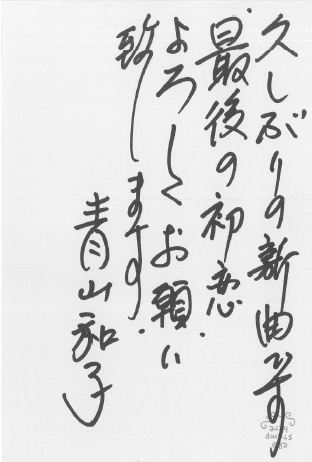 久しぶりの新曲です
最後の初恋
よろしくお願い
致します。
青山和子